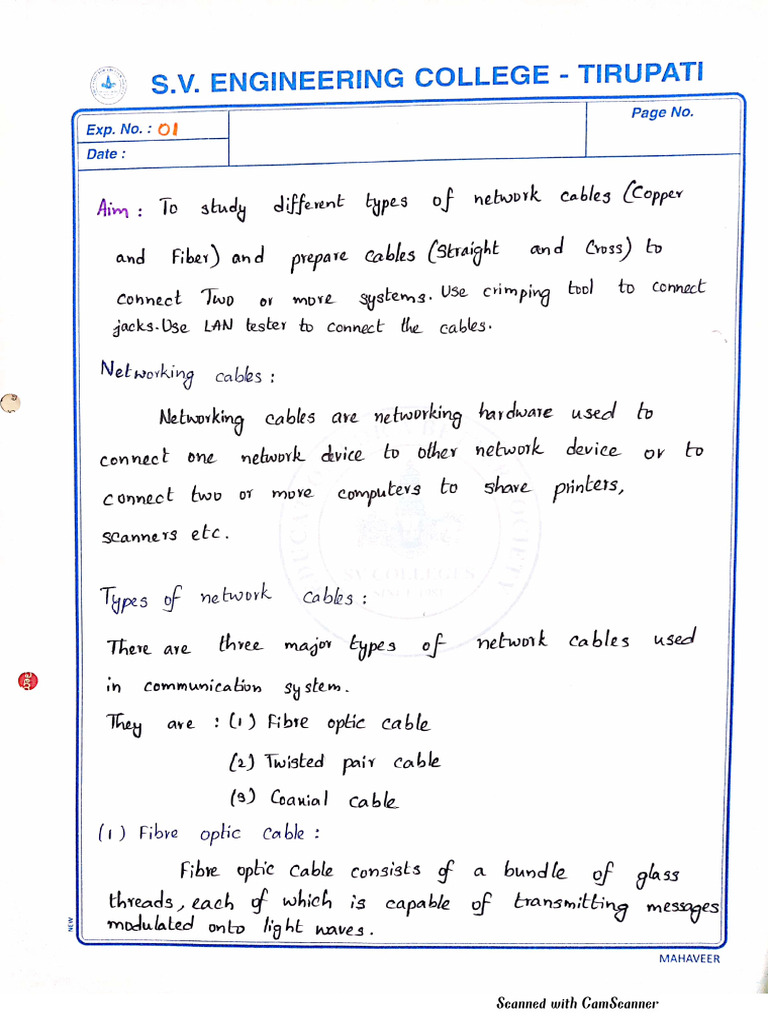 S.V. ENGINEERING COLLEGE - TIRUPATI
Exp. No. : 01
Page No.
Date :
Aim : To study different types of network cables (Copper
and Fiber) and prepare cables (Straight and Cross) to
connect Two or more systems. Use crimping tool to connect
jacks. Use LAN tester to connect the cables.
Networking cables :
Networking cables are networking hardware used to
connect one network device to other network device or to
connect two or more computers to share printers,
scanners etc.
SV COLLEGES
Types of network cables :
There are three major types of network cables used
in communication system.
They are : (1) Fibre optic cable
(2) Twisted pair cable
(3) Coaxial cable
(1) Fibre optic cable :
Fibre optic cable consists of a bundle of glass
threads, each of which is capable of transmitting messages
modulated onto light waves.
NEW
MAHAVEER
Scanned with CamScanner